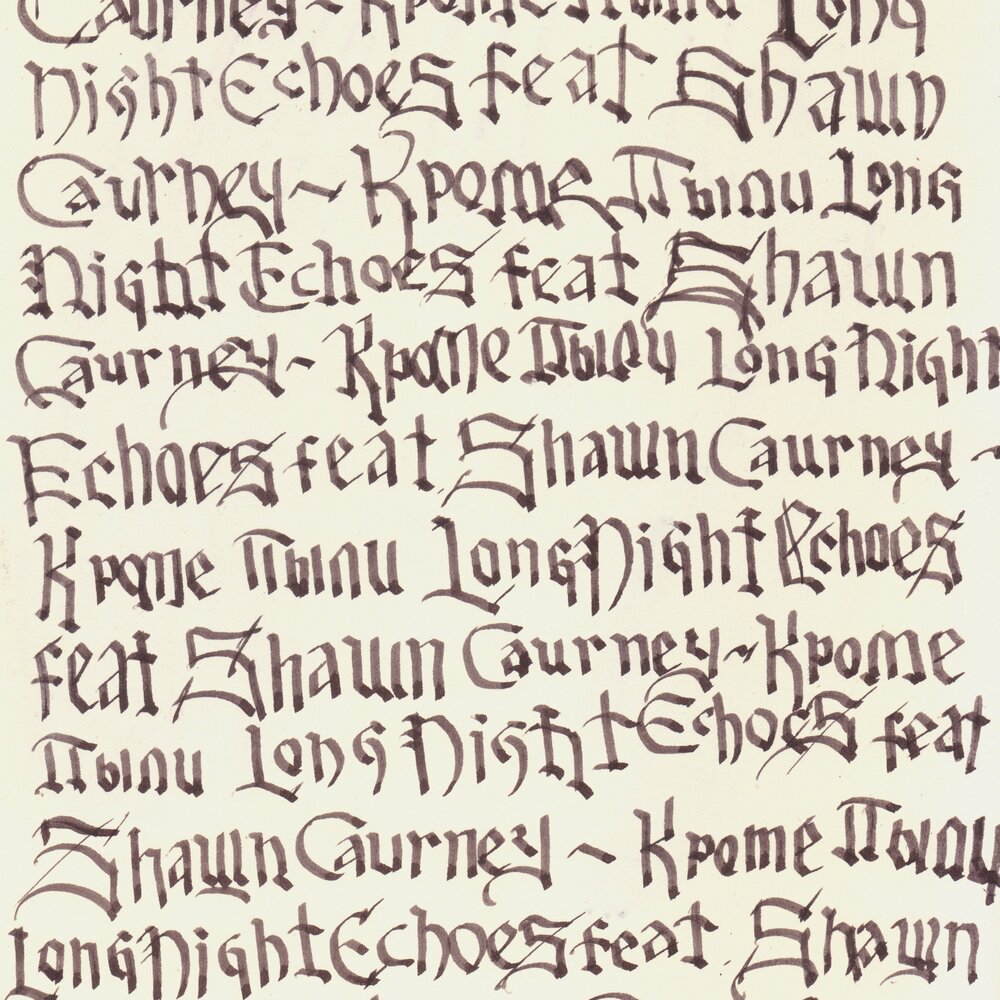 Caurney ~ Кроме Пыли Long
Night Echoes feat Shawn
Caurney ~ Кроме Пыли Long
Night Echoes feat Shawn
Caurney ~ Кроме Пыли Long Night
Echoes feat Shawn Caurney ~
Кроме Пыли Long Night Echoes
feat Shawn Caurney ~ Кроме
Пыли Long Night Echoes feat
Shawn Caurney ~ Кроме Пыли
Long Night Echoes feat. Shawn